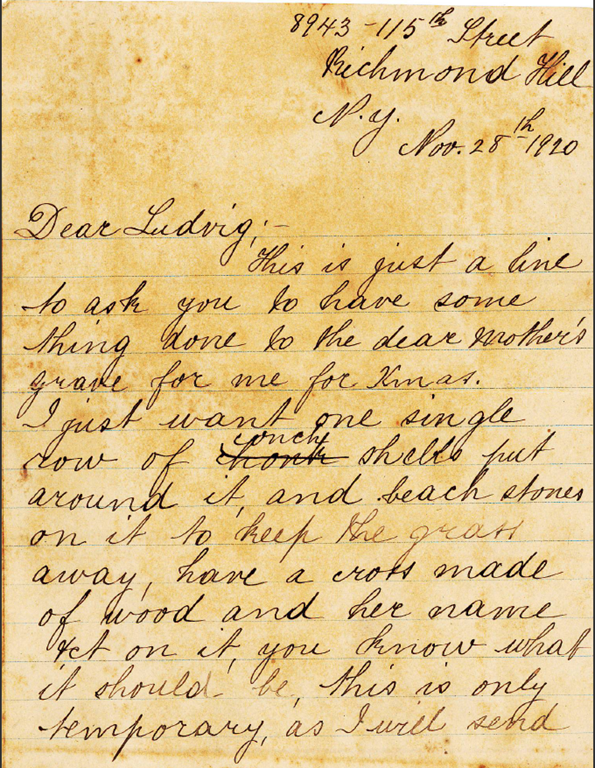 8943-115th Street
Richmond Hill
N.Y.
Nov. 28th 1920
Dear Ludvig;-
This is just a line
to ask you to have some
thing done to the dear Mother's
grave for me for Xmas.
I just want one single
conch
row of chonk shells put
around it, and beach stones
on it to keep the grass
away, have a cross made
of wood and her name
&ct on it, you know what
it should be, this is only
temporary, as I will send